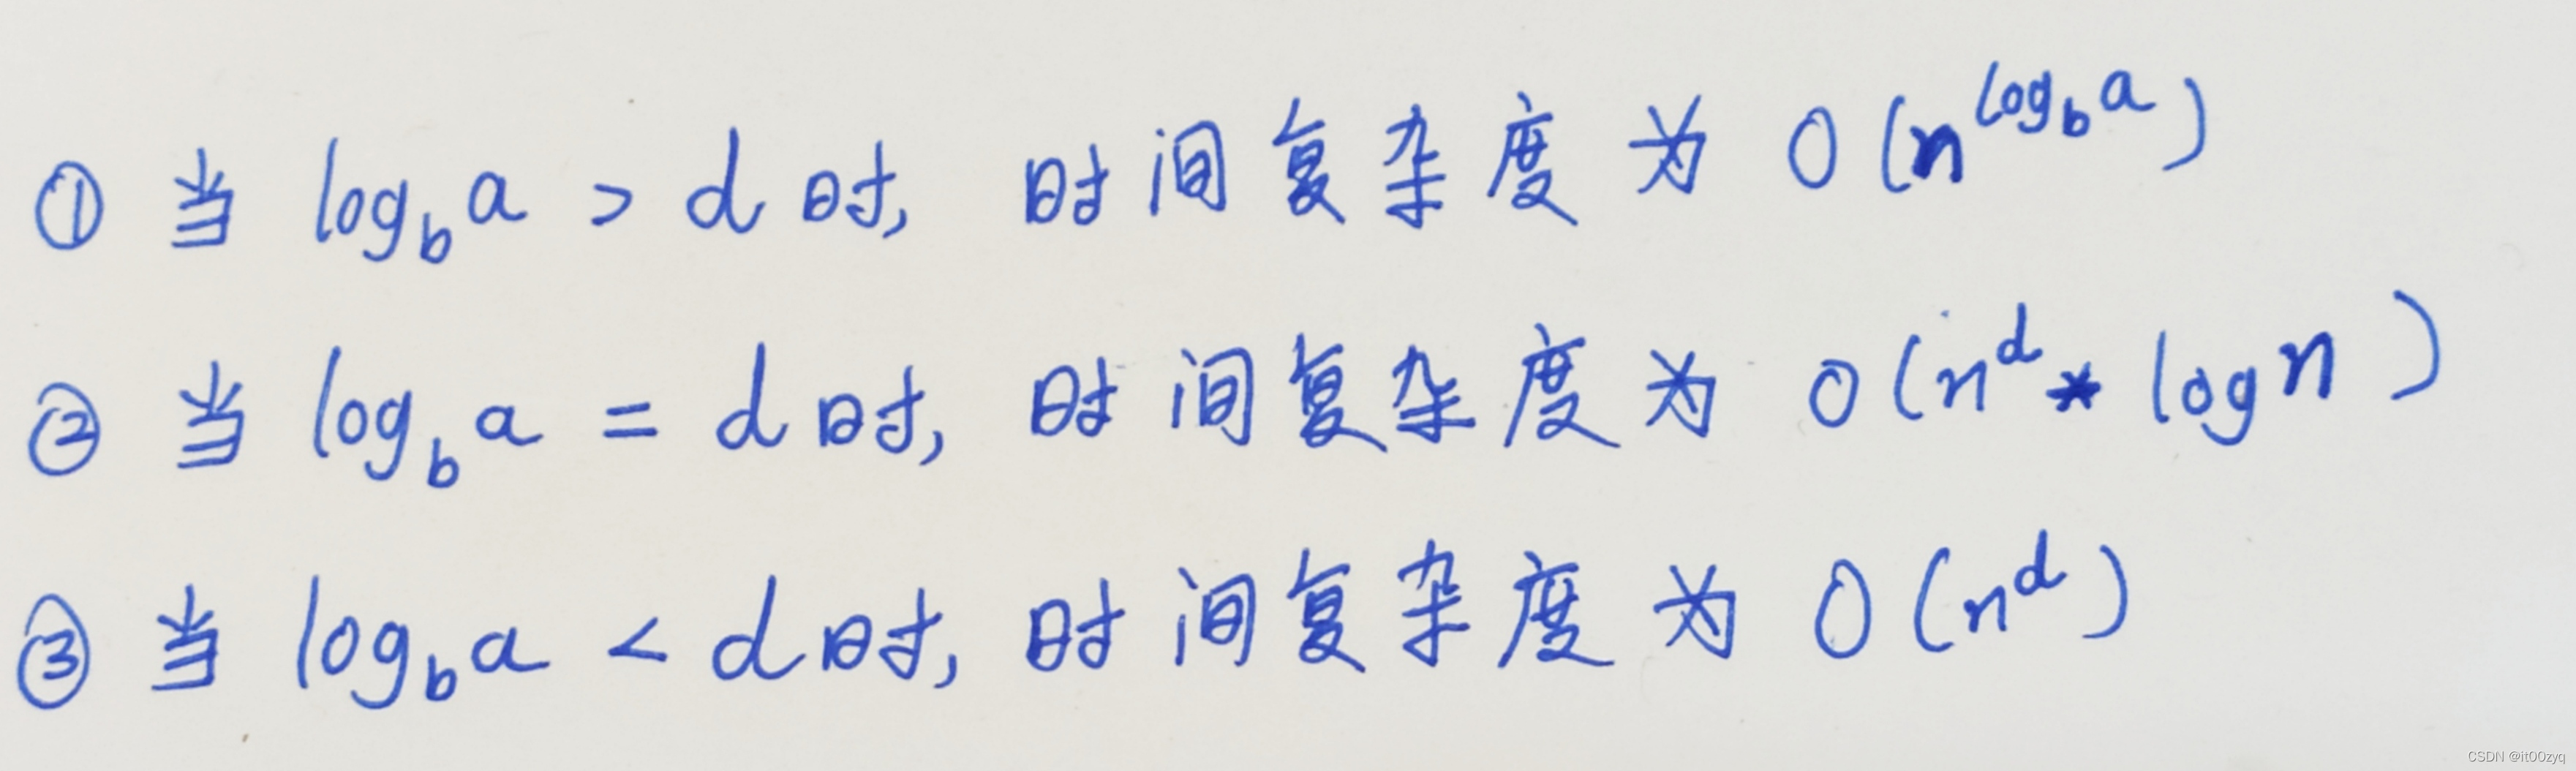 ① 当 log_b a > d 时, 时间复杂度为 O(n^{log_b a})
② 当 log_b a = d 时, 时间复杂度为 O(n^d * log n)
③ 当 log_b a < d 时, 时间复杂度为 O(n^d)
CSDN @it00zyq